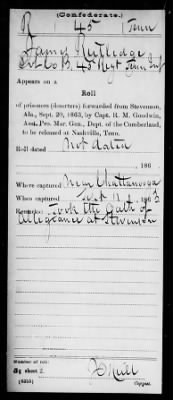 (Confederate.)
R 45 Tenn
James Rutledge
Pvt Co B, 45 Regt Tenn Inf
Appears on a
Roll
of prisoners (deserters) forwarded from Stevenson,
Ala., Sept. 20, 1863, by Capt. R. M. Goodwin,
Asst. Pro. Mar. Gen., Dept. of the Cumberland,
to be released at Nashville, Tenn.
Roll dated Not dated
186
Where captured Near Chattanooga
When captured Sept 11, 1863
Remarks: Took the Oath of
Allegiance at Stevenson
Number of roll:
sheet 2
Copyist.